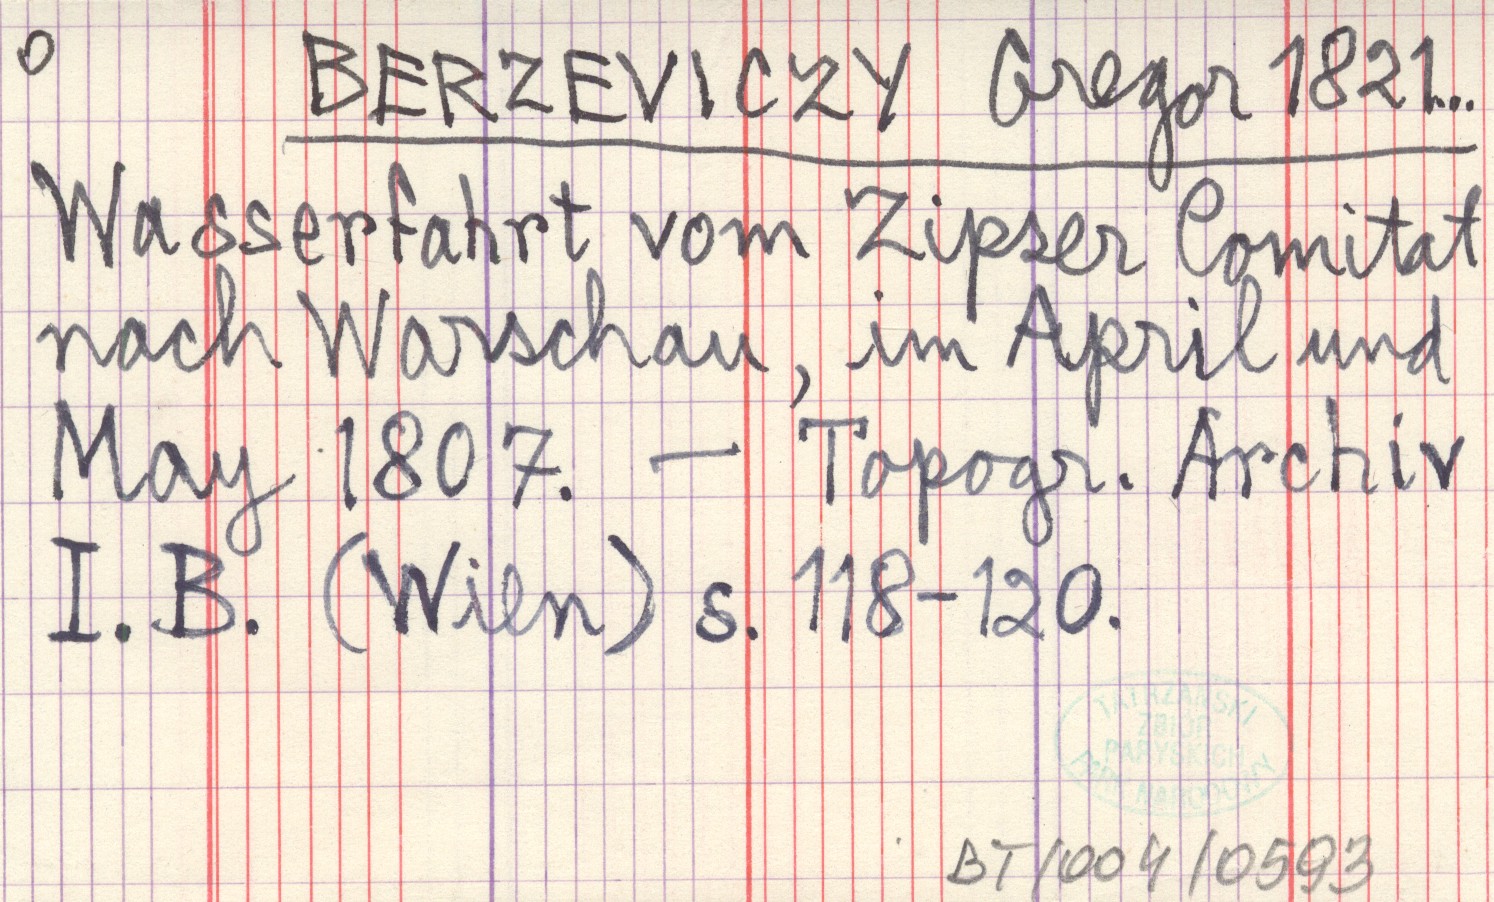 o BERZEVICZY Gregor 1821...
Wasserfahrt vom Zipser Comitat
nach Warschau, im April und
May 1807. — Topogr. Archiv
I. B. (Wien) s. 118-120.
TATRZAŃSKI
ZBIÓR
PARYSKICH
PARK NARODOWY
BT/004/0593